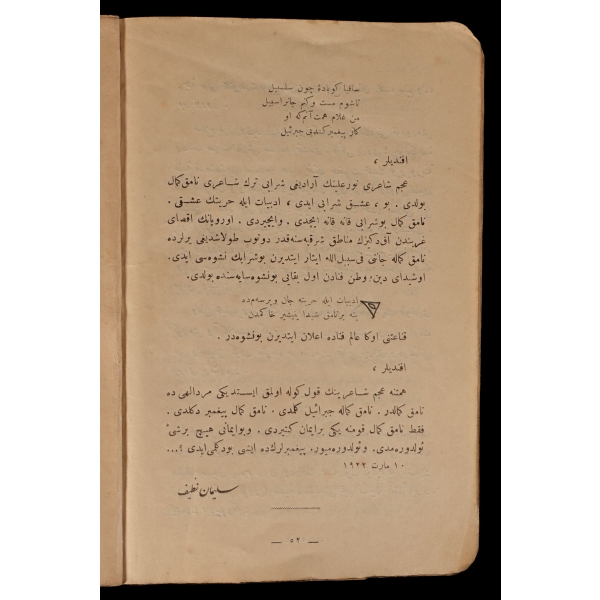 ساقیا كو بادهٔ چون سلسبیل
تا شوم مست و كنم جانرا سبیل
من غلام همت آنم كه او
كار پیغمبر كند بی جبرئیل
افندیلر ،
عجم شاعری نورعلینك آرادیغی شرابی ترك شاعری نامق كمال
بولدی . بو ، عشق شرابی ایدی ، ادبیات ایله حریتك عشقی .
نامق كمال بوشرابی قانه قانه ایچدی . وایچیردی . اوروپانك اقصای
غربندن آق دكزك مناطق شرقیه سنه قدر دونوب طولاشدیغی یرلرده
نامق كماله جاننی فی سبیل الله ایثار ایتدیرن بوشرابك نشوه سی ایدی .
اوشیدای دین ، وطن فنادن اول بقایی بونشوه سایه سنده بولدی .
ادبیات ایله حریته جان ویرسه م ده
ینه بر نامق شیدا یتیشیر خاكمدن
قناعتنی اوكا عالم فناده اعلان ایتدیرن بونشوه در .
افندیلر ،
همتنه عجم شاعرینك قول كوله اولمق ایستدیكی مردالهی ده
نامق كمالدر . نامق كماله جبرائیل كلمدی . نامق كمال پیغمبر دكلدی .
فقط نامق كمال قومنه یكی بر ایمان كتیردی . وبوایمانی هیچ برشیٔ
ئولدوره مدی . وئولدوره میور . پیغمبرلرك ده ایشی بودكلمی ایدی ؟ ...
١٠ مارت ١٩٢٢
سلیمان نظیف
— ٥٢ —